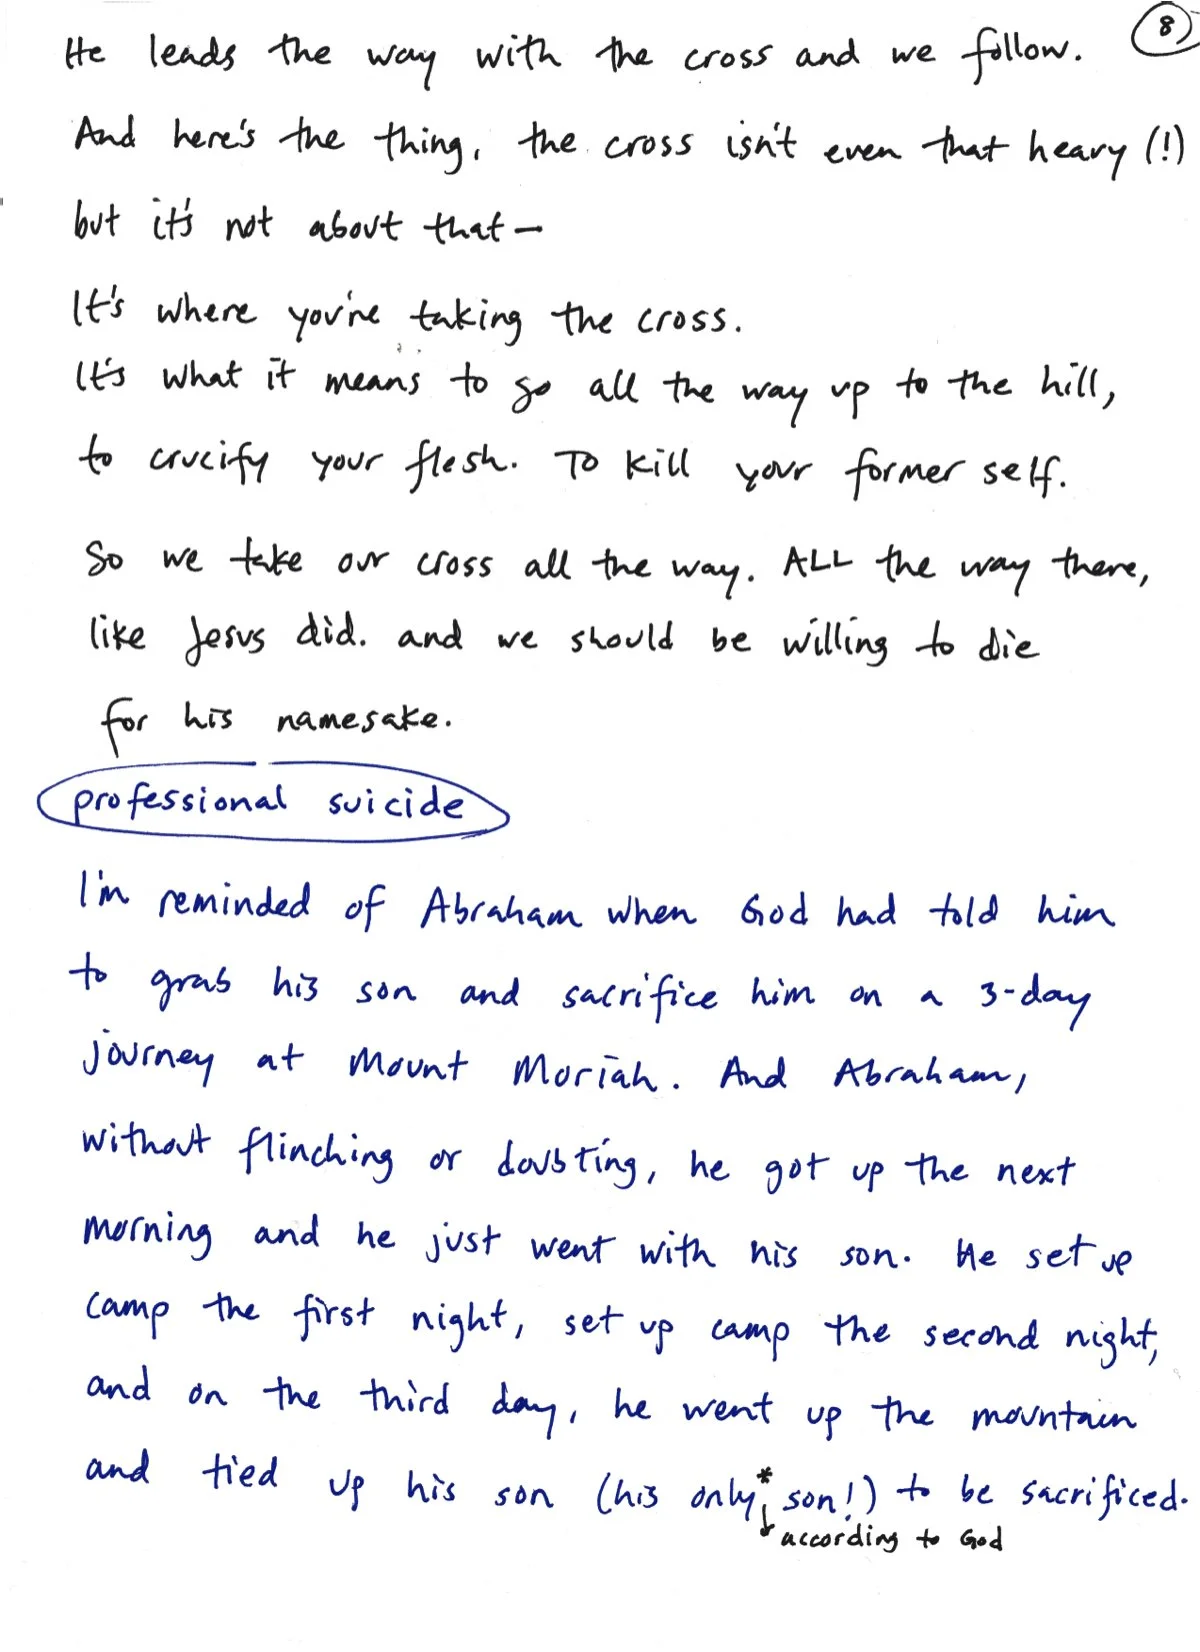 8
He leads the way with the cross and we follow.
And here's the thing, the cross isn't even that heavy (!)
but it's not about that —
It's where you're taking the cross.
It's what it means to go all the way up to the hill,
to crucify your flesh. To kill your former self.
So we take our cross all the way. ALL the way there,
like Jesus did. and we should be willing to die
for his namesake.
professional suicide
I'm reminded of Abraham when God had told him
to grab his son and sacrifice him on a 3-day
journey at Mount Moriah. And Abraham,
without flinching or doubting, he got up the next
morning and he just went with his son. He set up
camp the first night, set up camp the second night,
and on the third day, he went up the mountain
and tied up his son (his only* son!) to be sacrificed.
according to God